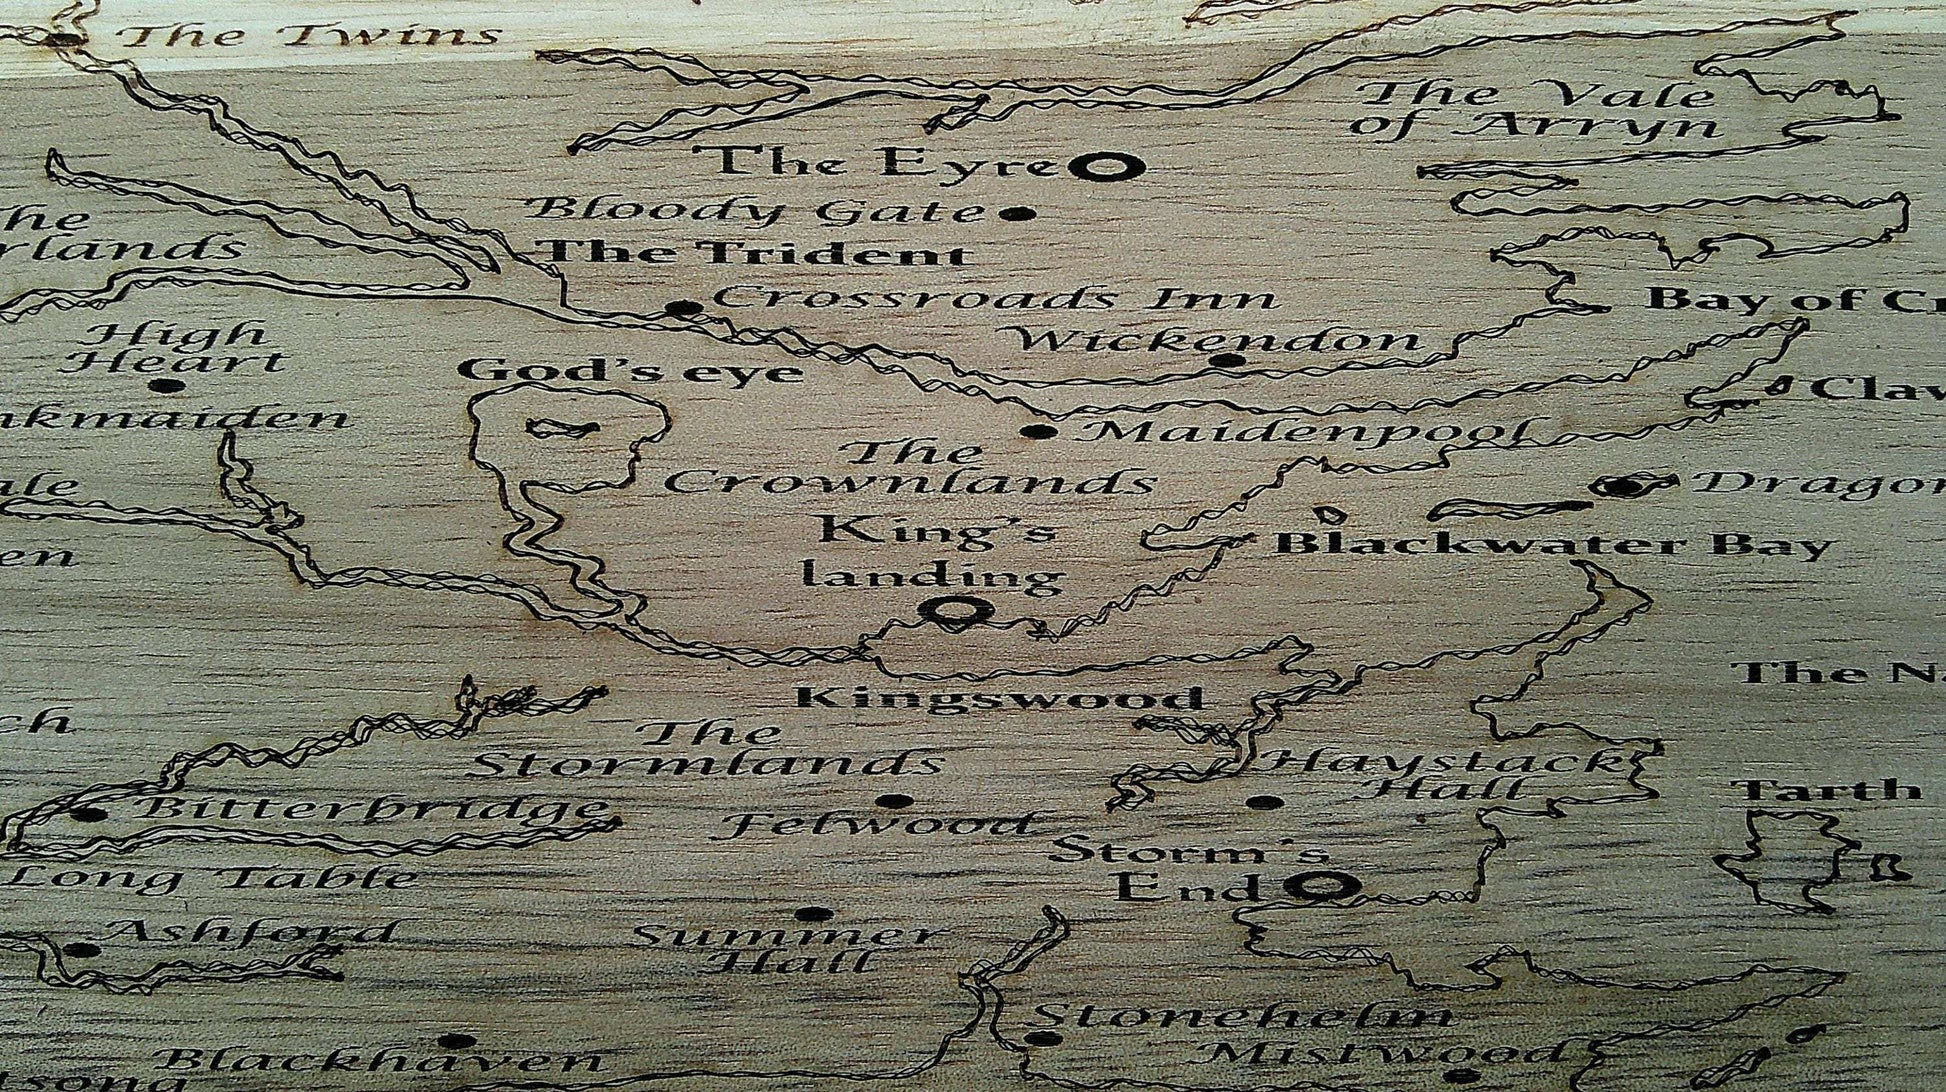 The Twins
The Vale
of Arryn
The Eyre
Bloody Gate
he
rlands
The Trident
Crossroads Inn
Bay of Cr
High
Heart
Wickendon
God's eye
Claw
nkmaiden
Maidenpool
The
Crownlands
ale
Dragon
King's
landing
Blackwater Bay
en
The Na
Kingswood
ch
The
Stormlands
Haystack
Hall
Tarth
Bitterbridge
Felwood
Storm's
End
Long Table
Ashford
Summer
Hall
Stonehelm
Mistwood
Blackhaven
tsong